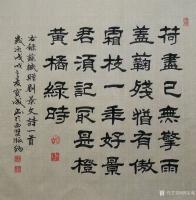 荷盡已無擎雨
蓋菊殘猶有傲
霜枝一年好景
君須記最是橙
黃橘綠時
右錄蘇軾贈劉景文詩一首
歲次戊戌